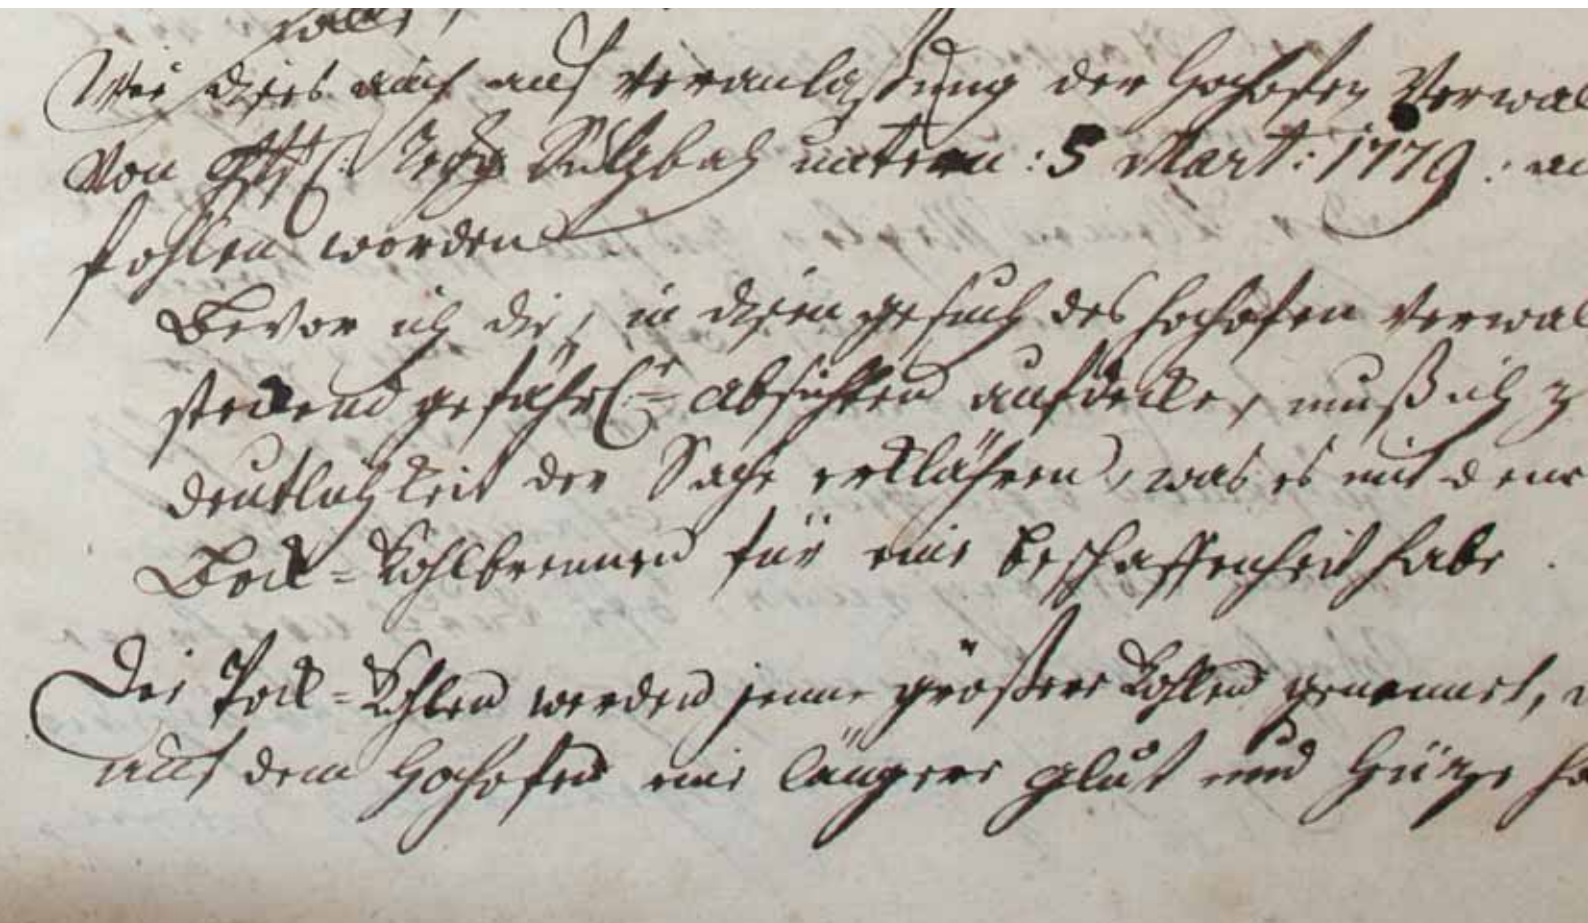 Wie dieses auch auf veranlaßung der Hochofen Verwal
von Sultzbach unterm: 5 Mart: 1779. an
fohlen worden
Bevor ich die, in diesem gesuch des hochofen verwal
steckend gefährl= absichten aufdecke, muß ich z
deutlichkeit der Sache erklähren, was es mit dem
Bock=Kohlbrennen für eine beschaffenheit habe.
Die Pock=Kohlen werden jene größere Kohlen genennet, d
auf dem Hochofen eine längere glut und Hütze ha